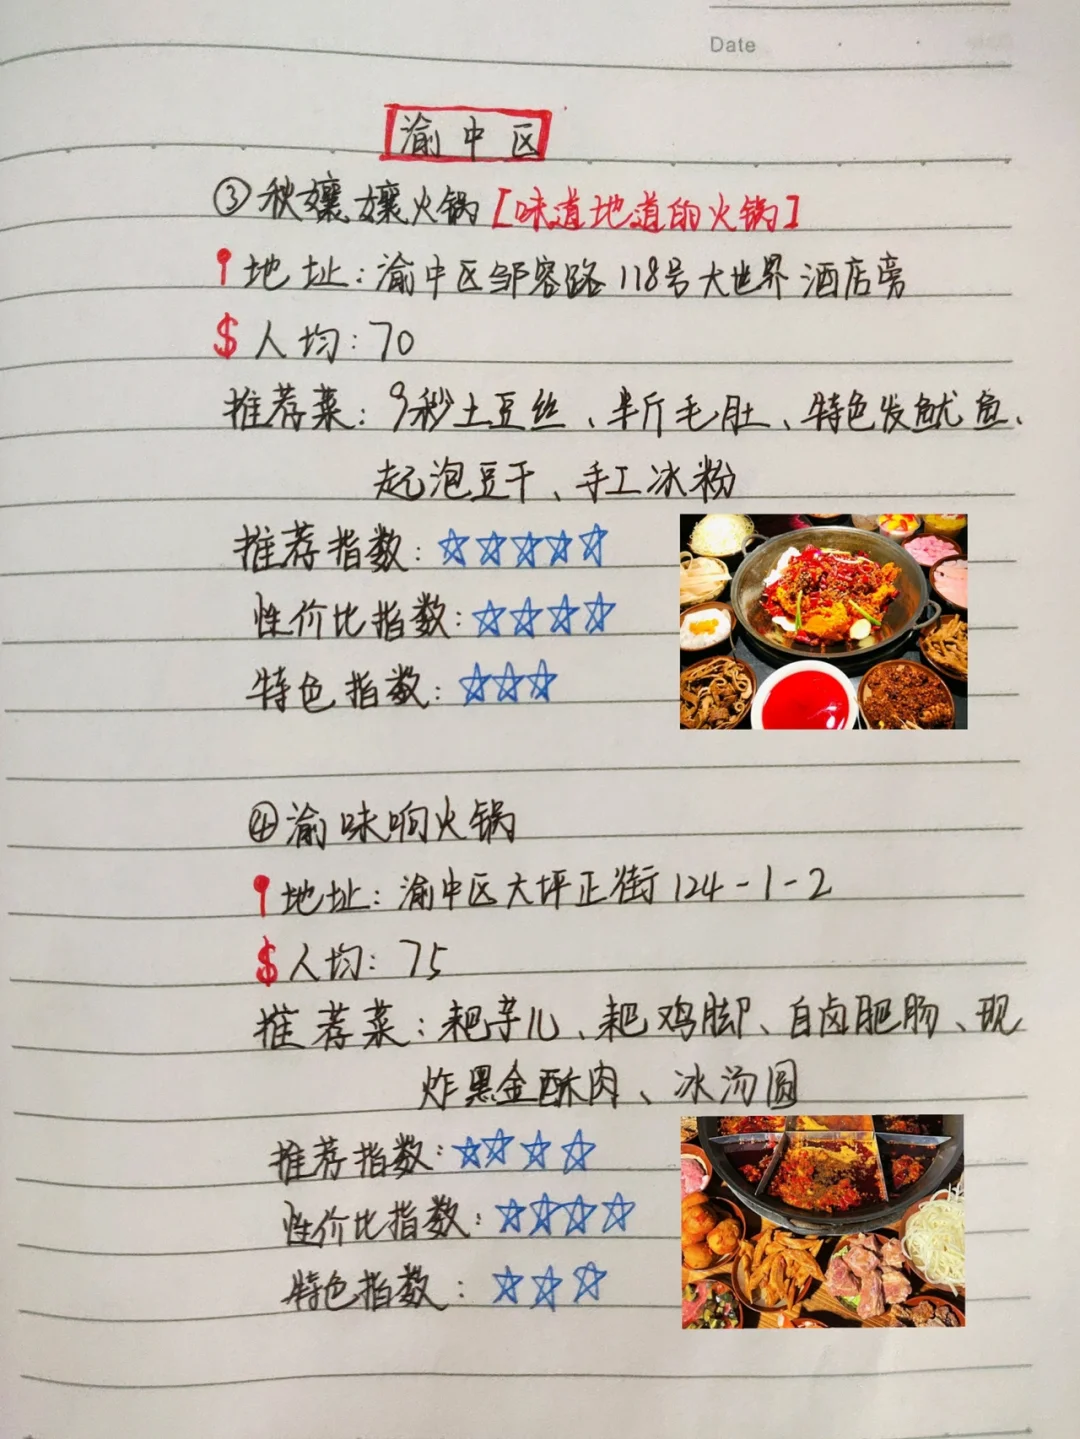 Date
渝中区
③秋孃孃火锅[味道地道的火锅]
地址:渝中区邹容路118号大世界酒店旁
$人均:70
推荐菜:9秒土豆丝、半斤毛肚、特色发鱿鱼、
起泡豆干、手工冰粉
推荐指数:☆☆☆☆☆
性价比指数:☆☆☆☆
特色指数:☆☆☆
④渝味响火锅
地址:渝中区大坪正街124-1-2
$人均:75
推荐菜:耙芋儿、耙鸡脚、自卤肥肠、现
炸黑金酥肉、冰汤圆
推荐指数:☆☆☆☆
性价比指数:☆☆☆☆
特色指数:☆☆☆